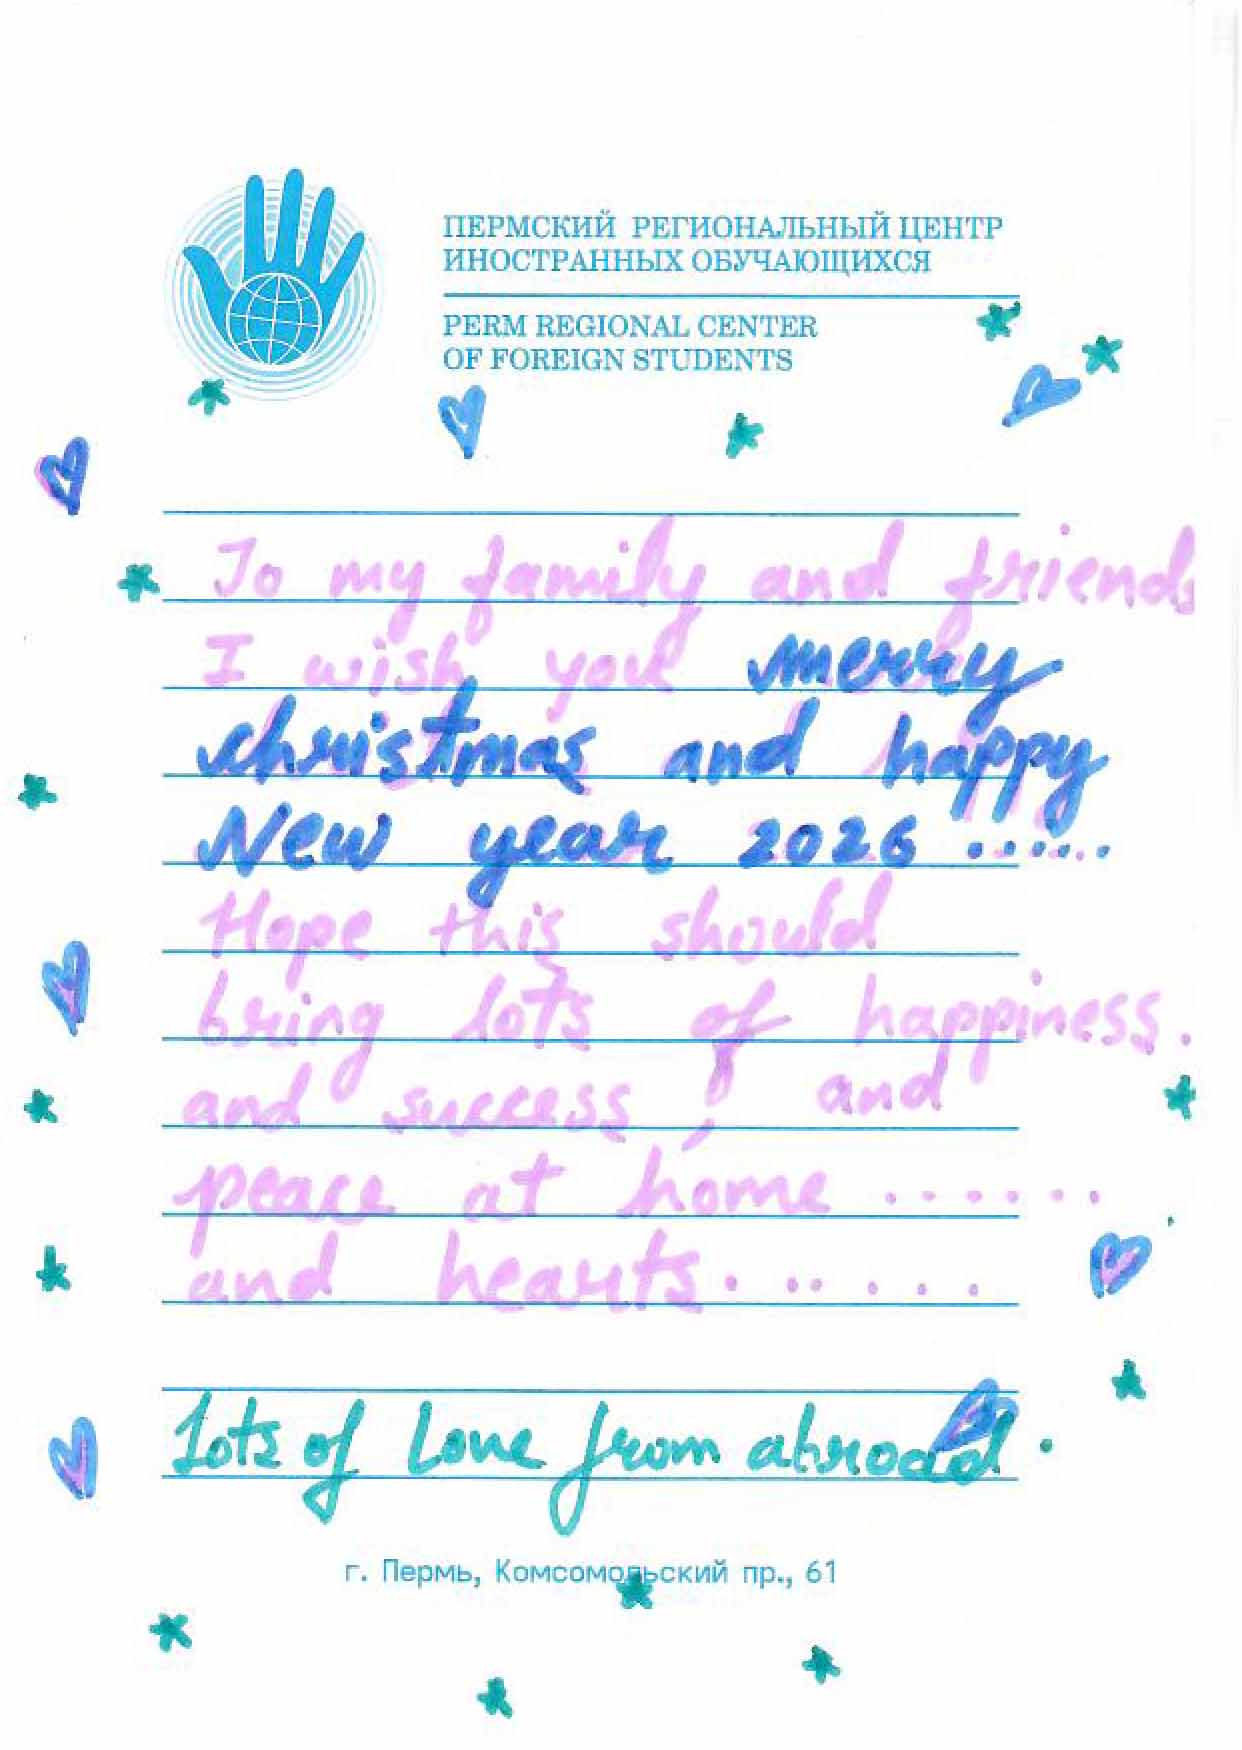 ПЕРМСКИЙ РЕГИОНАЛЬНЫЙ ЦЕНТР
ИНОСТРАННЫХ ОБУЧАЮЩИХСЯ
PERM REGIONAL CENTER
OF FOREIGN STUDENTS
To my family and friends
I wish you merry
christmas and happy
New year 2026 ......
Hope this should
bring lots of happiness.
and success, and
peace at home ......
and hearts......
Lots of Love from abroad.
г. Пермь, Комсомольский пр., 61